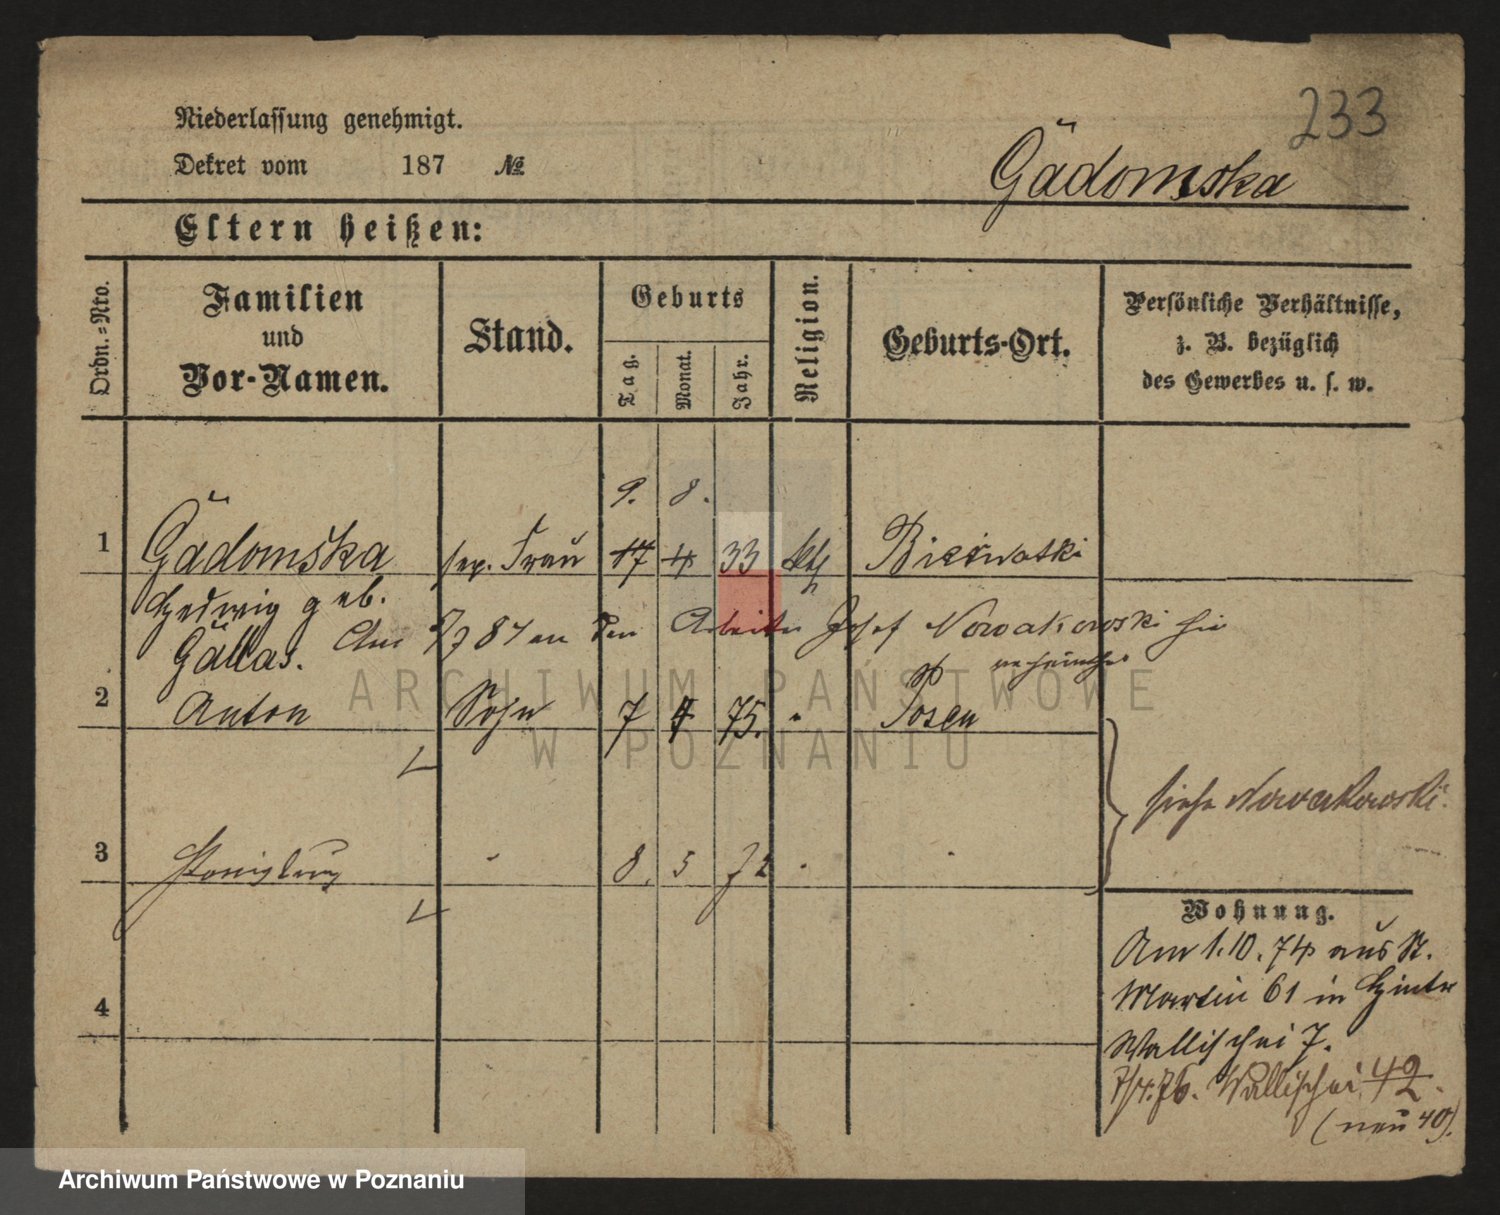 233
Niederlassung genehmigt.
Dekret vom 187 №
Gadomska
Eltern heißen:
Ordn.=Nro.
Familien und Vor-Namen.
Stand.
Geburts
Tag. Monat. Jahr.
Religion.
Geburts-Ort.
Persönliche Verhältnisse, z. B. bezüglich des Gewerbes u. s. w.
9. 8.
1 Gadomska sep. Frau 17 4 33 kth
Hedwig geb.
Gallas. Am 87 an den Arbeiter Josef Nowakowski hier
verheirathet
2 Anton Sohn 7 75. " Posen
siehe Nowakowski.
3 " 8. 5 72 " "
Wohnung.
Am 1.10.74 aus St.
Martin 61 in Hinter
Wallischei 7.
7/4.76. Wallischei 42.
(neu 40).
4
ARCHIWUM PAŃSTWOWE
W POZNANIU
Archiwum Państwowe w Poznaniu